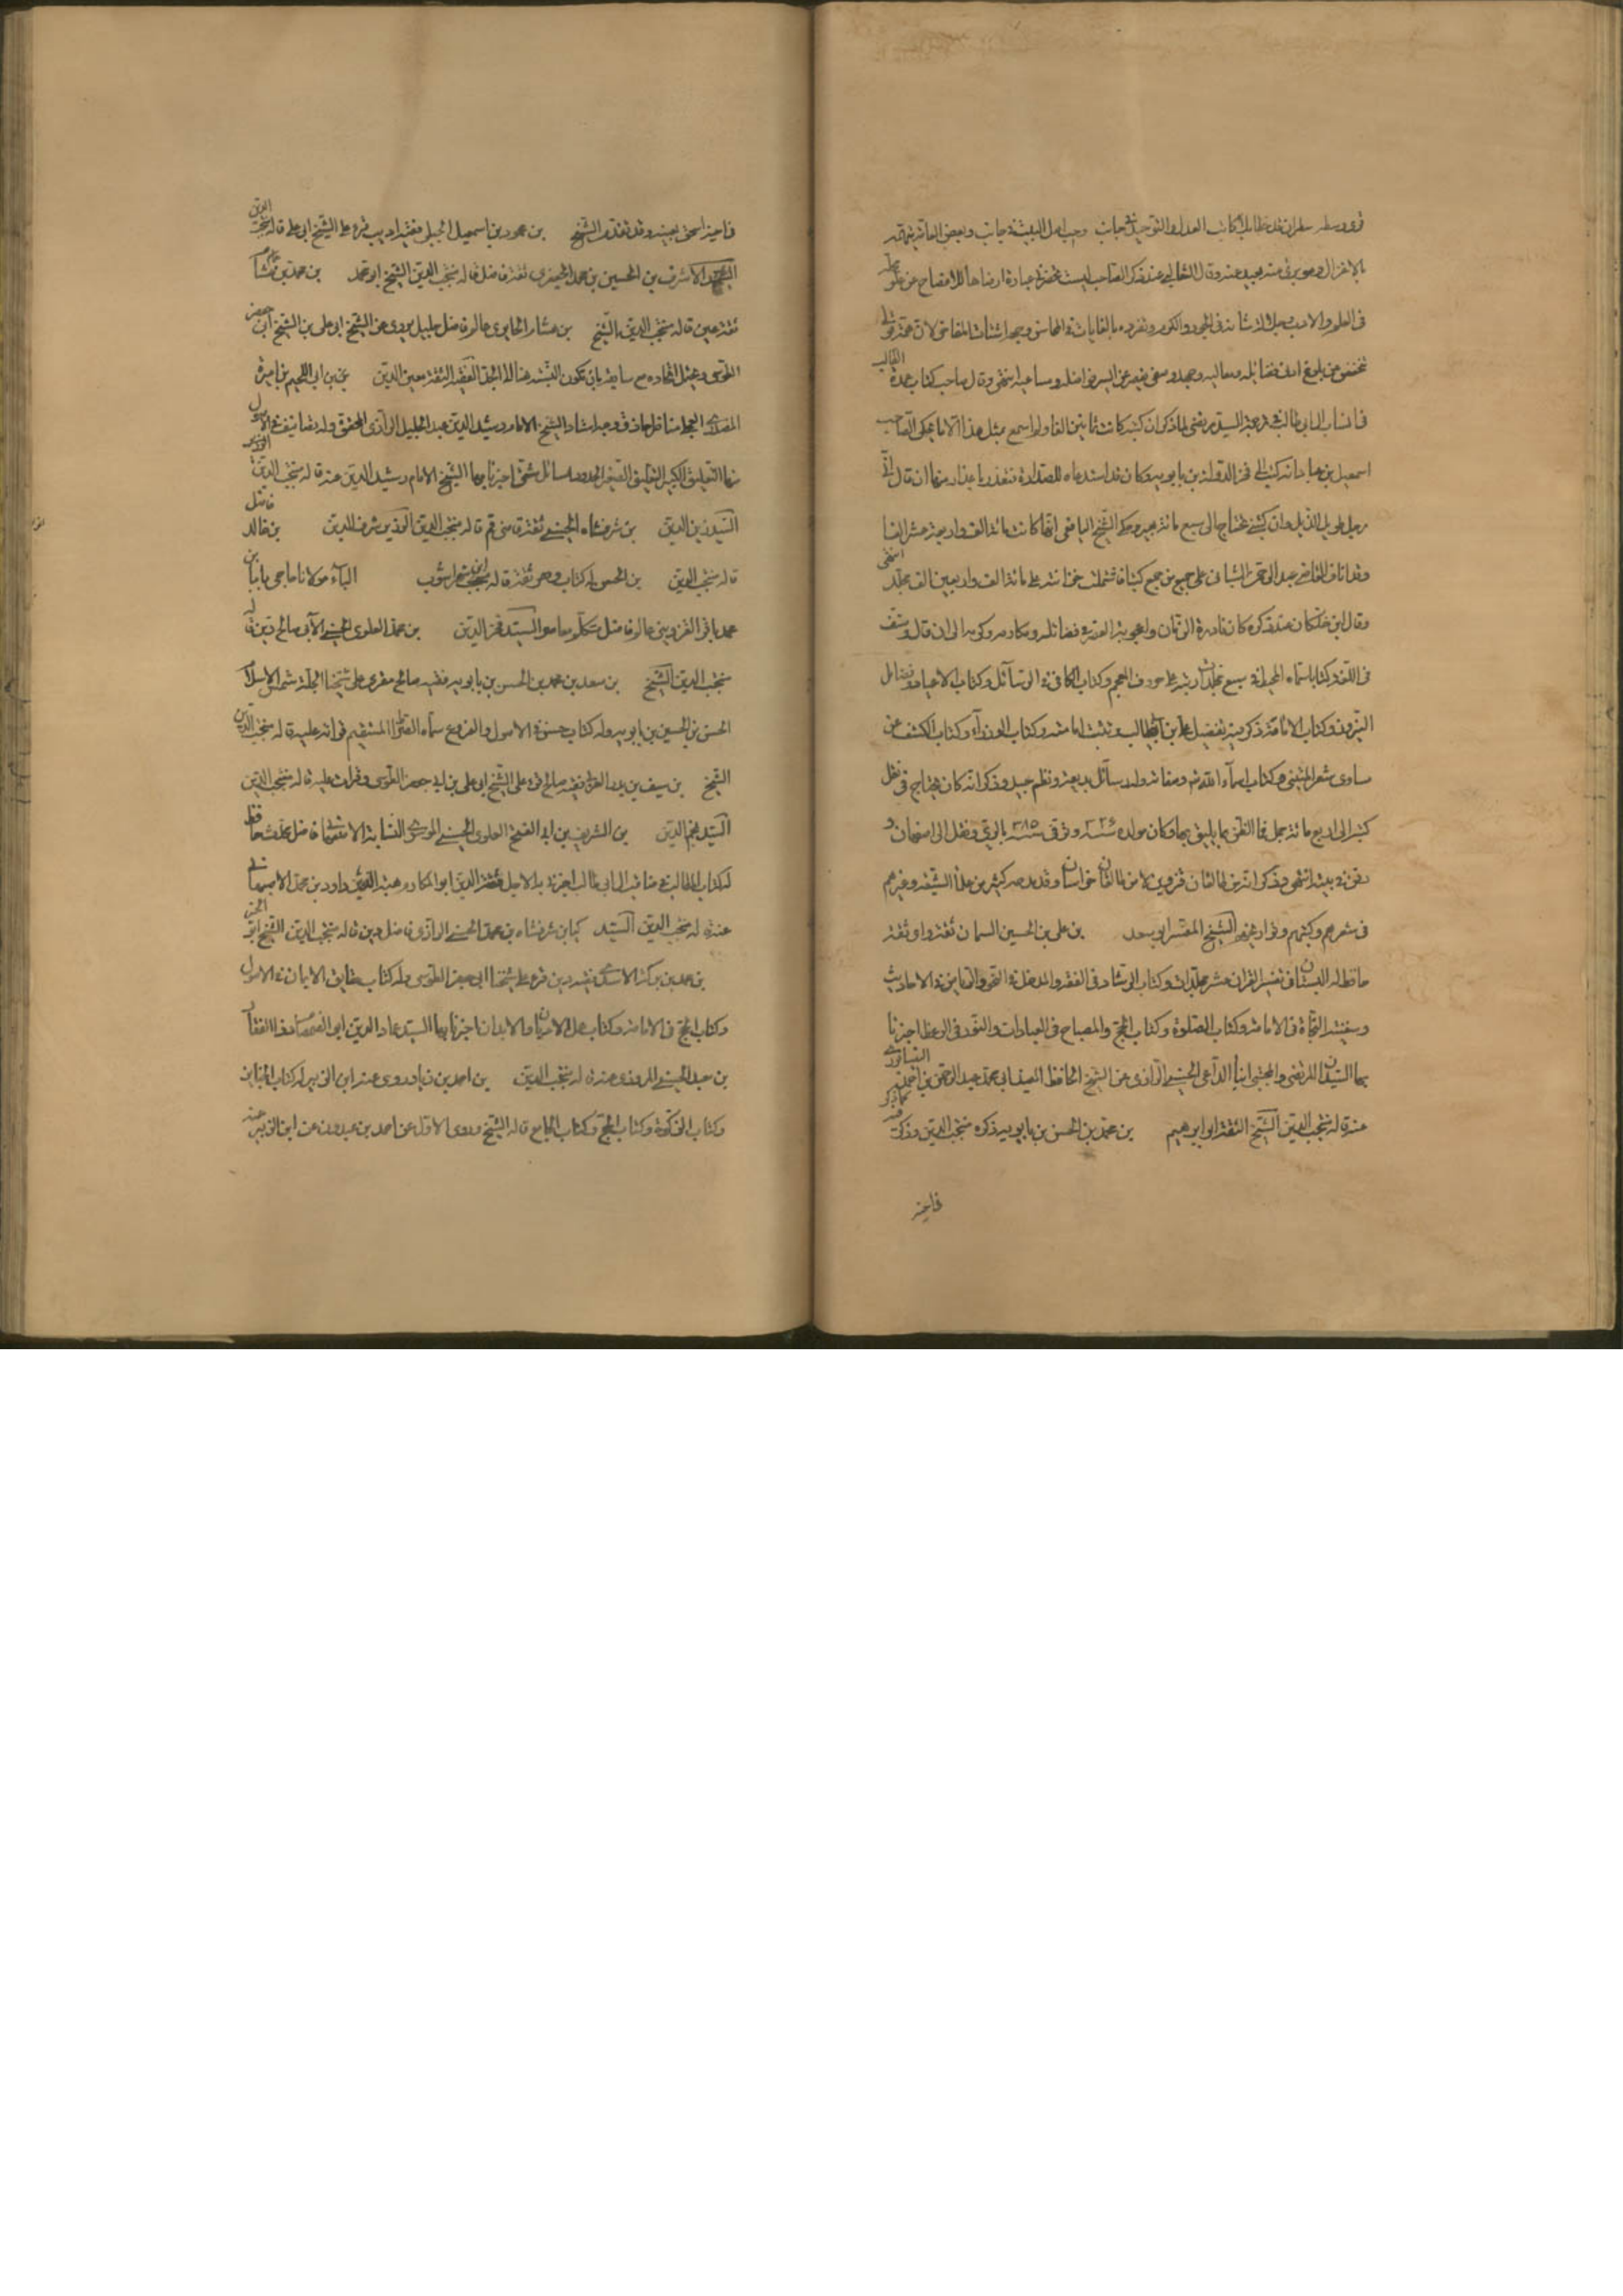 في العلم والادب وجلالة شانه في الجود والكرم وتفرده بالغايات في المحاسن وجمعه اشتات المفاخر لان همة قولي
تنخفض عن بلوغ ادنى فضائله ومعاليه وجهد وصفي يقصر عن ايسر فواضله ومساعيه انتهى وقال صاحب كتاب عمدة الطالب
في انساب ال ابي طالب في ترجمة السيد المرتضى لما ذكر ان كتبه كانت ثمانين الفا ولم اسمع بمثل هذا الا ما يحكى عن الصاحب
اسمعيل بن عباد انه كتب الى فخر الدولة بن بابويه وكان قد استدعاه للصدارة فتعذر باعذار منها ان قال اني
رجل طويل الذيل وان كتبي تحتاج الى سبع مائة بعير وحكى الشيخ اليافعي انها كانت مائة الف واربعة عشر الفا
وقد اناف القاضي عبد الرحمن الشيباني على جميع من جمع كتبا فاشتملت خزانته على مائة الف واربعين الف مجلد انتهى
وقال ابن خلكان عند ذكره كان نادرة الزمان واعجوبة العصر في فضائله ومكارمه وكرمه الى ان قال وصنف
في اللغة كتابا سماه المحيط في سبع مجلدات رتبه على حروف المعجم وكتاب الكافي في الرسائل وكتاب الاعياد وفضائل
النيروز وكتاب الامامة ذكر فيه تفضيل علي بن ابي طالب وتثبت امامته وكتاب الوزراء وكتاب الكشف عن
مساوى شعر المتنبي وكتاب اسماء الله تعالى وصفاته وله رسائل بديعة ونظم جيد وذكر انه كان يحتاج في نقل
كتبه الى اربع مائة جمل فما الظن بما يليق بها وكان مولده سنة ٣٢٦ وتوفي سنة ٣٨٥ بالري ونقل الى اصفهان و
دفن في بيته انتهى وذكر انه من طالقان قزوين لا من طالقان خراسان وقد مدحه كثير من علماء الشيعة وغيرهم
في شعرهم وكتبهم وتواريخهم الشيخ المفسر ابو سعد بن علي بن الحسين السمان ثقة واي ثقة
حافظ له البستان في تفسير القران عشر مجلدات وكتاب الرشاد في الفقه والمدخل في النحو والرياض في الاحاديث
وسفينة النجاة في الامامة وكتاب الصلوة وكتاب الحج والمصباح في العبادات والنور في الوعظ اخبرنا
بها السيدان المرتضى والمجتبى ابنا الداعي الحسيني الرازي عن الشيخ الحافظ المفيد ابي محمد عبد الرحمن بن احمد النيسابوري
عنه قاله منتجب الدين الشيخ الثقة ابو ابرهيم بن محمد بن الحسن بن بابويه ذكره منتجب الدين وذكر
فاخيه
فاخيه اسحق بعينه وقد تقدم الشيخ بن محمود بن اسمعيل الجبلي فقيه اديب قرء على الشيخ ابي علي قاله منتجب الدين
الاشرف بن الحسين بن محمد الجعفري ثقة فاضل قاله منتجب الدين الشيخ ابو محمد بن محمد بن
ثقة عين قاله منتجب الدين الشيخ بن عالم فاضل جليل يروى عن الشيخ ابو علي بن الشيخ ابي جعفر
الطوسي ويحتمل اتحاده مع سابقه بان تكون النسبة هنا الى الجد الفقيه الثقة معين الدين بن ابي اللجيم بن اميرة
المصدري العجلي مناظر حاذق وجه استاد الشيخ الامام رشيد الدين عبد الجليل الرازي المحقق وله تصانيف في الاصول
منها التعليق الكبير التعليق الصغير الحدود مسائل شتى اخبرنا بها الشيخ الامام رشيد الدين عنه قاله منتجب الدين
السيد زين الدين بن شرفشاه الحسيني ثقة قاضي قم قاله منتجب الدين الوزير شرف الدين بن خالد فاضل
قاله منتجب الدين بن الحسن له كتاب وهو ثقة قاله ابن شهراشوب الباء مولانا حاجي بابا بن
محمد باقر القزويني عالم فاضل متكلم معاصر السيد فخر الدين بن محمد العلوي الحسيني الابي صالح دين قاله
منتجب الدين الشيخ بن سعد بن محمد بن الحسن بن بابويه فقيه صالح مقرى على شيخنا الجد شمس الاسلام
الحسن بن الحسين بن بابويه وله كتاب حسن في الاصول والفروع سماه الصراط المستقيم قراته عليه قاله منتجب الدين
الشيخ بن سيف بن فقيه صالح قرء على الشيخ ابي علي بن ابي جعفر الطوسي وقرات عليه قاله منتجب الدين
السيد نجم الدين بن الشريف بن ابي الفتح العلوي الحسيني الموسوي النسابة الاصفهاني فاضل محدث حافظ
له كتاب المطالب في مناقب ال ابي طالب اخبرنا به الاجل ابو المكارم هبة الله بن داود بن محمد الاصبهاني
عنه قاله منتجب الدين السيد كيا بن شرفشاه بن محمد الحسيني الرازي فاضل دين قاله منتجب الدين الشيخ ابو الخير
بن الاسدي فقيه دين قرء على شيخنا ابي جعفر الطوسي وله كتاب حقايق الايمان في الاصول
وكتاب الحجج في الامامة وكتاب عمل الاديان والابدان اخبرنا بها السيد عماد الدين ابو الصمصام ذو الفقار
بن معبد الحسيني المروزي عنه قاله منتجب الدين بن احمد بن زياد روى عنه ابن الزبير له كتاب الجنايز
وكتاب الزكوة وكتاب الحج وكتاب الجامع قاله الشيخ وروى الاول عن احمد بن عبدون عن ابن الزبير عنه